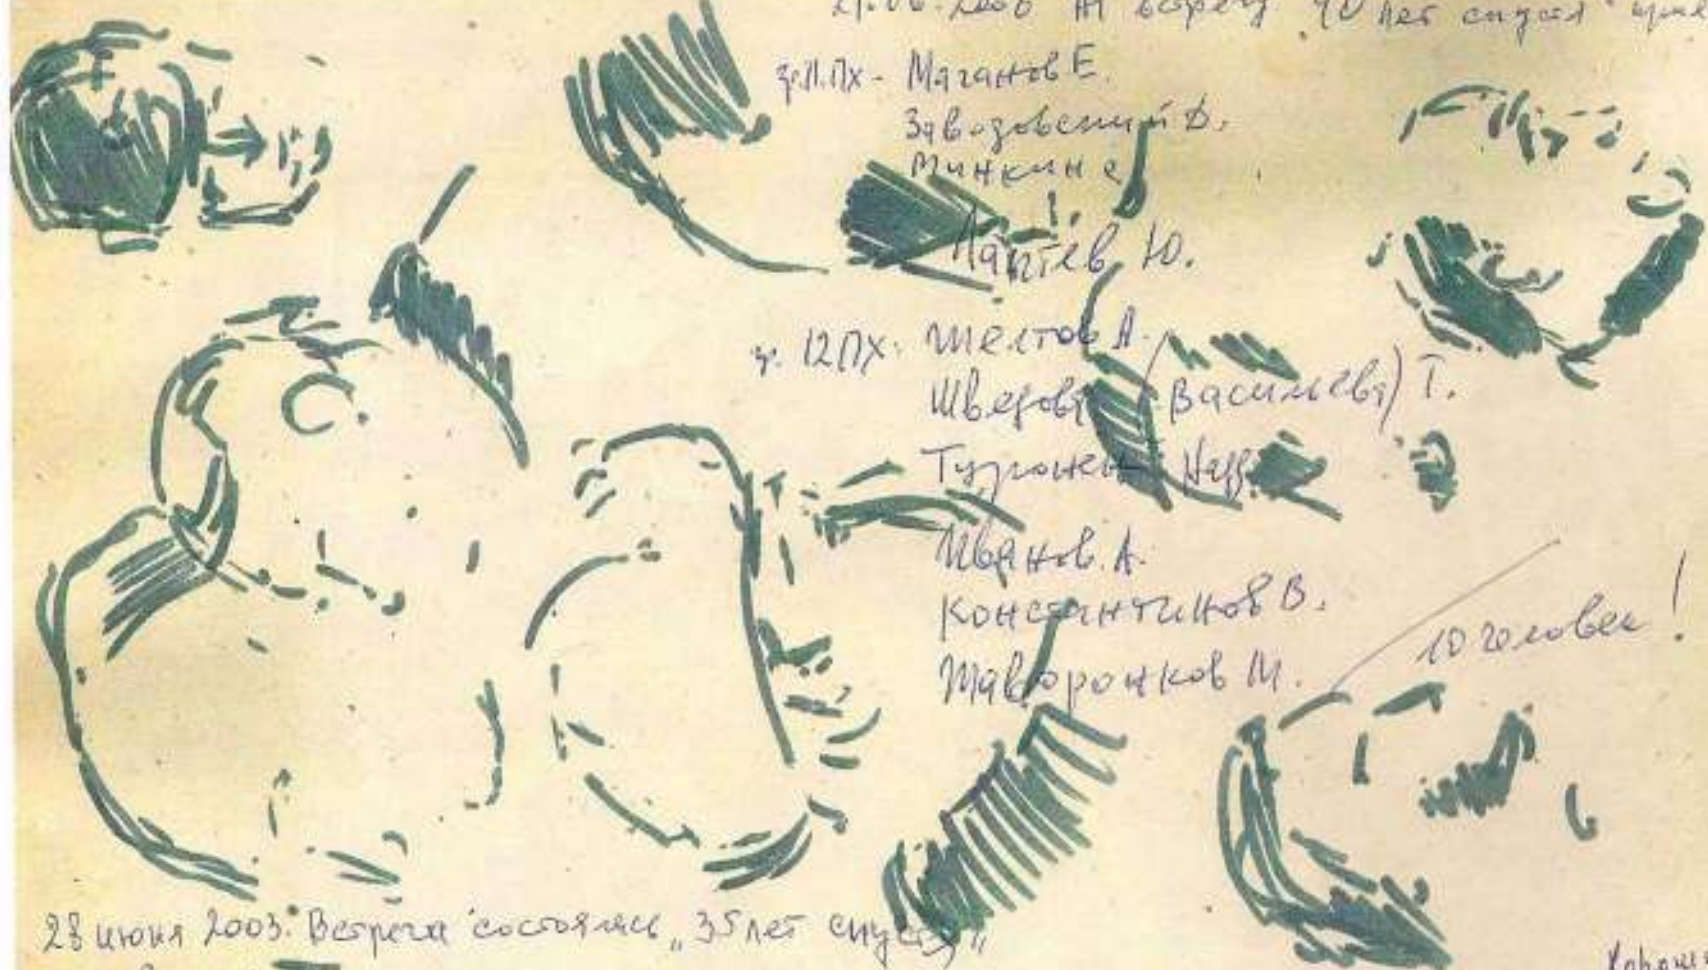 на встречу "40 лет спустя"
гр. 11 ПХ - Маганов Е.
Завозовский Д.
Минкина
Лаптев Ю.
гр. 12 ПХ: Желтов А.
Шведова (Васильева) Т.
Иванов. А.
Константинов В.
Жаворонков М.
10 человек!
28 июня 2003. Встреча состоялась „35 лет спустя"